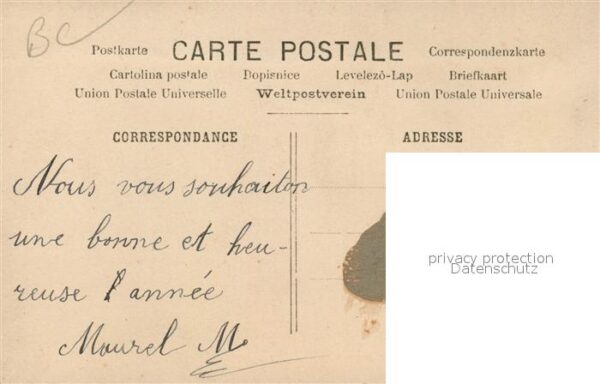 BC
Postkarte CARTE POSTALE Correspondenzkarte
Cartolina postale Dopisnice Levelező-Lap Briefkaart
Union Postale Universelle Weltpostverein Union Postale Universale
CORRESPONDANCE ADRESSE
Nous vous souhaiton
une bonne et heu-
reuse l'année
Maurel M.
privacy protection
Datenschutz